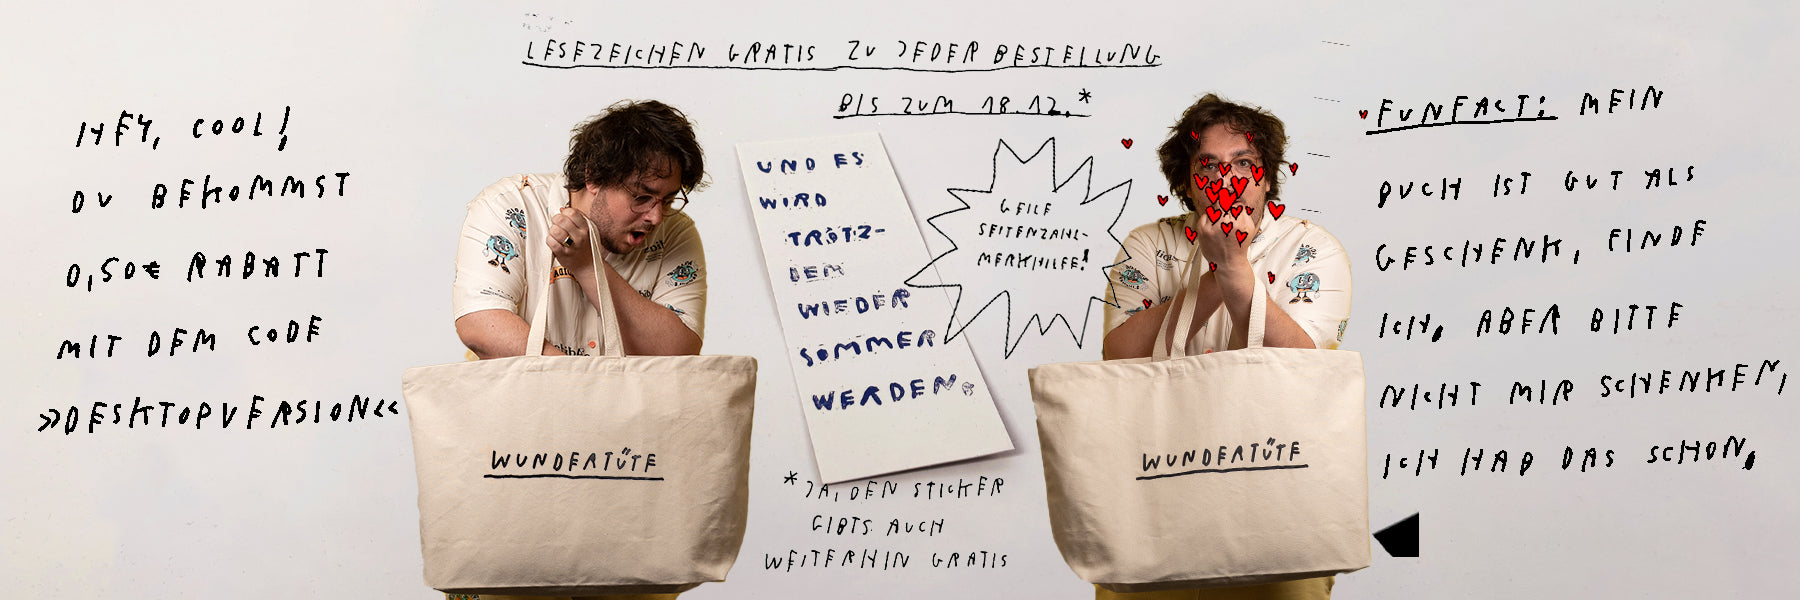 LESEZEICHEN GRATIS ZU JEDER BESTELLUNG
BIS ZUM 18.12.*
HEY, COOL!
DU BEKOMMST
0,50€ RABATT
MIT DEM CODE
»DESKTOPVERSION«
UND ES
WIRD
TROTZ-
DEM
WIEDER
SOMMER
WERDEN.
GEILE
SEITENZAHL-
MERKHILFE!
*JA, DEN STICKER
GIBTS AUCH
WEITERHIN GRATIS
WUNDERTÜTE
WUNDERTÜTE
FUNFACT: MEIN
BUCH IST GUT ALS
GESCHENK, FINDE
ICH, ABER BITTE
NICHT MIR SCHENKEN,
ICH HAB DAS SCHON.